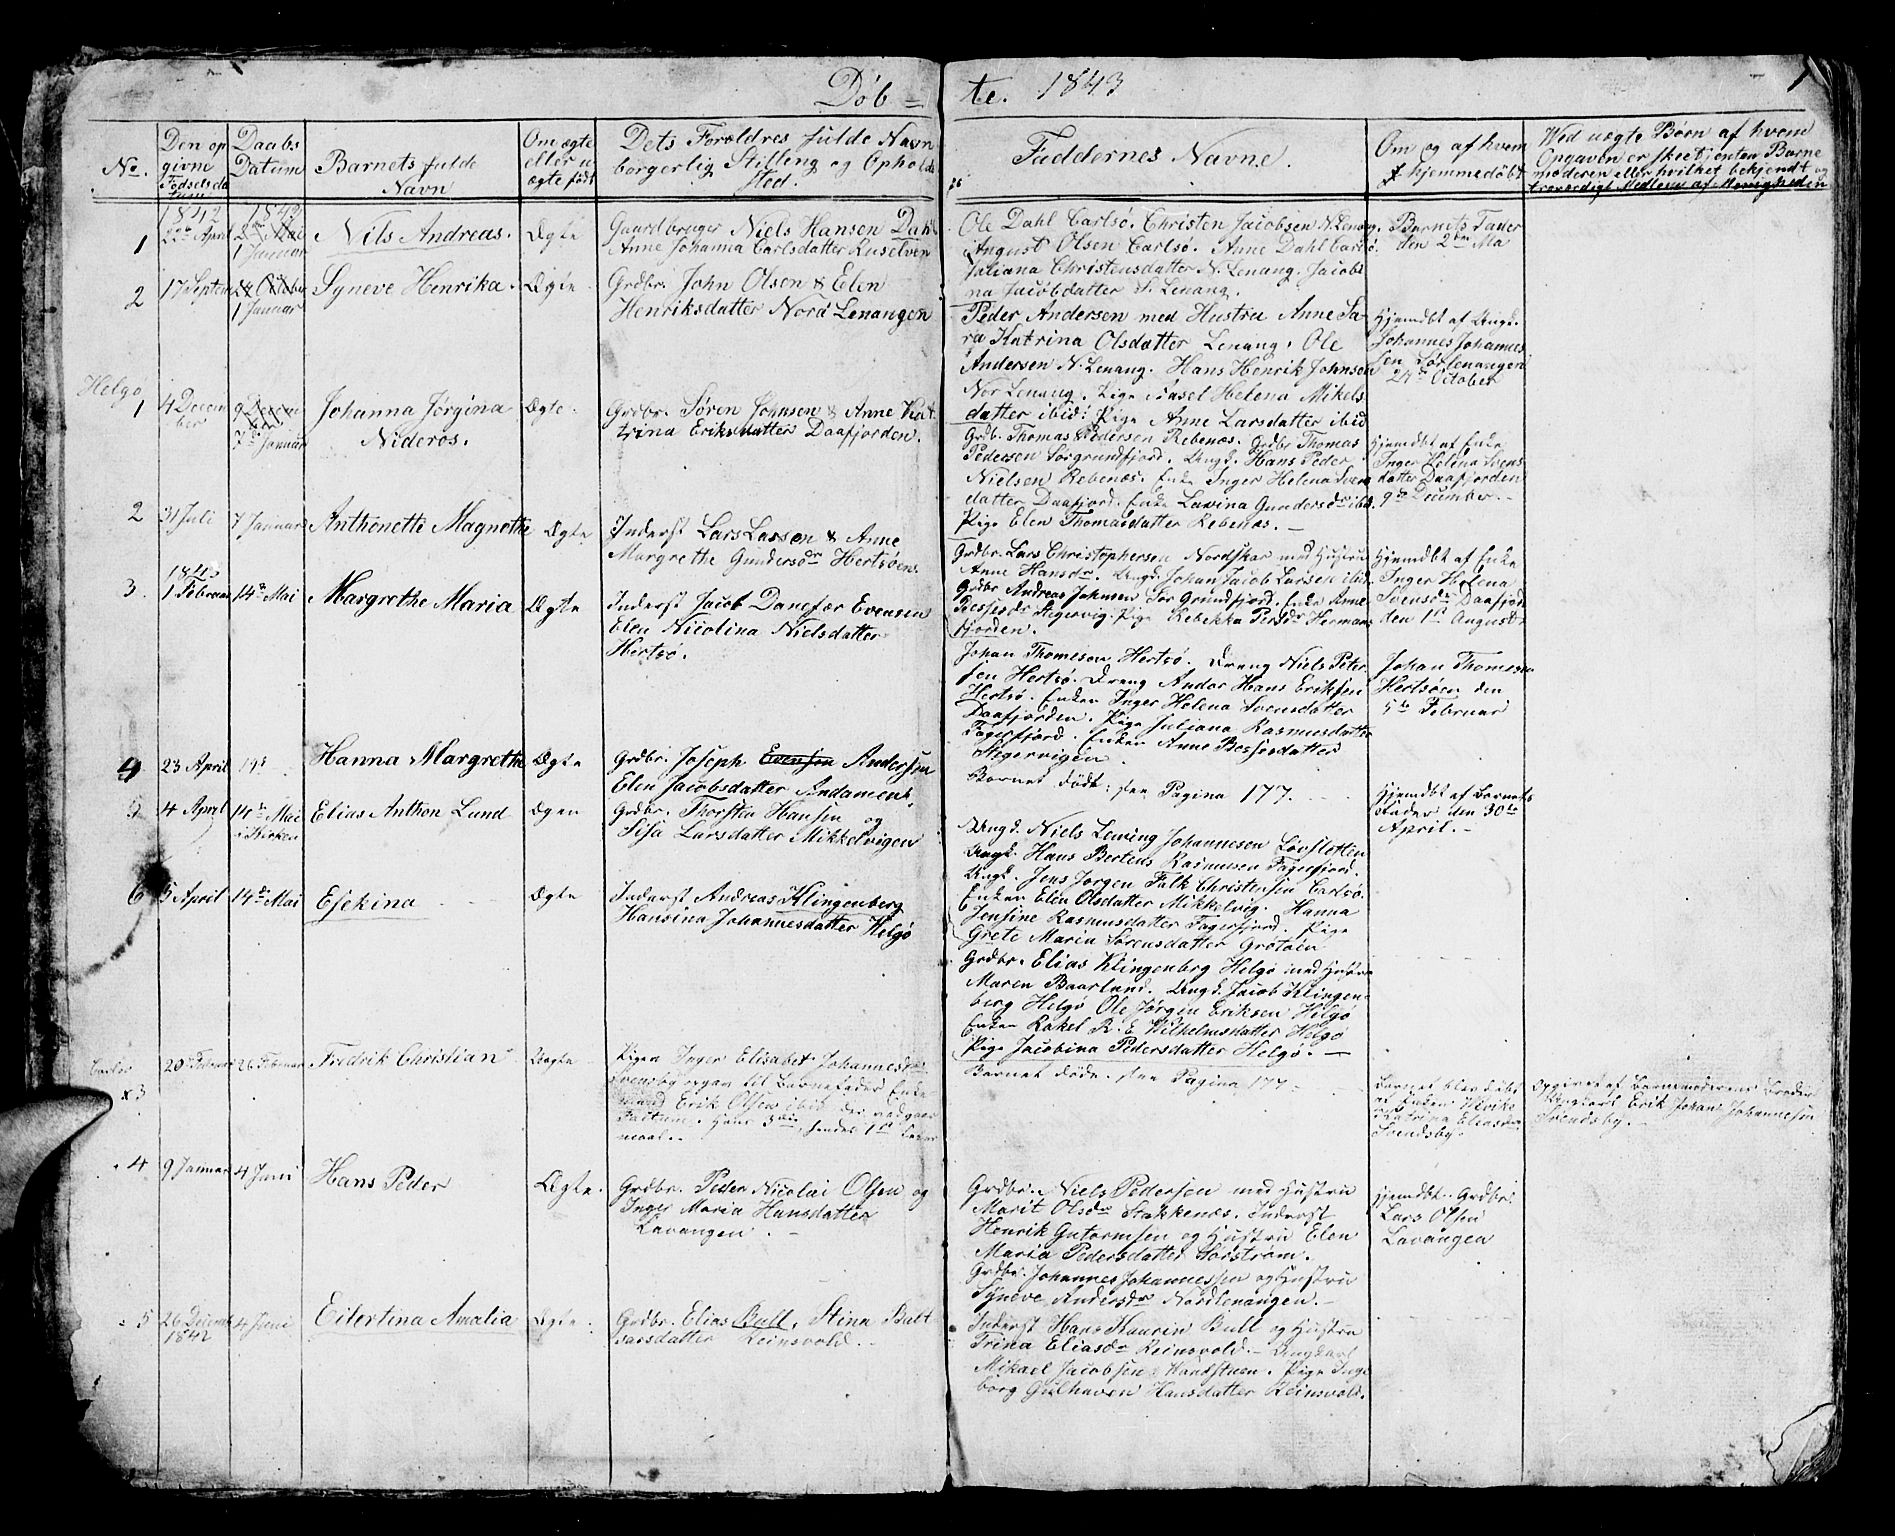 Døb = te. 1843
1
No.
Den op
givne
Fødsels da
tum
Daabs
Datum
Barnets fulde
Navn
Om ægte
eller u
ægte født
Dets Forældres fulde Navn
borgerlig Stilling og Opholds
sted.
Faddernes Navne.
Om og af hvem
hjemmedøbt
Wed uægte Børn af hvem
Opgaven er skeet, enten Barne
moderen eller hvilket bekjendt og
troværdigt Medlem af Menigheden
1
1842
22de April
1843
2den Mai
1 Januar
Nils Andreas.
Ægte
Gaardbruger Niels Hansen Dahl
Anne Johanna Carlsdatter Russelven
Ole Dahl Carlsø. Christen Jacobsen N. Lenang.
August Olsen Carlsø. Anne Dahl Carlsø.
Juliana Christensdatter N. Lenang. Jacobi
na Jacobdatter S. Lenang.
Barnets Fader
den 2den Ma
2
17 Septem
24 October
1 Januar
Syneve Henrika.
Ægte
Grdbr. John Olsen & Elen
Henriksdatter Nord Lenangen
Peder Andersen med Hustru Anne Sa-
ra Katrina Olsdatter Lenang. Ole
Andersen N. Lenang. Hans Henrik Johnsen
Nor Lenang. Pige Helena Mikels
datter ibid: Pige Anne Larsdatter ibid
Hjemdbt af Ungd.
Johannes Johannes
sen Sørlenangen
24de October
Helgø
1
4 Decem
ber
9 Decem
ber
7de Januar
Johanna Jørgina
Nideros.
Ægte.
Grdbr. Søren Johnsen & Anne Kat
trina Eriksdatter Daafjorden.
Grdb. Thomas Pedersen Rebenæs. Grdbr Thomas
Pedersen Sørgrundfjord. Ungd. Hans Peder
Nielsen Rebenæs. Enke Inger Helena Svens
datter Daafjord. Enke Lavina Gundersdr ibid.
Pige Elen Thomasdatter Rebenæs. —
Hjemdbt af Enke
Inger Helena Svens
datter Daafjorden
9de December. —
2
31 Juli
7 Januar
Anthonette Magnethe
Ægte
Inderst Lars Larsen & Anne
Margrethe Gundersdr Hertsøen.
Grdbr. Lars Christophersen Nordskar med Hustru
Anne Hansdr. Ungd. Johan Jacob Larsen ibid.
Grdbr Andreas Johnsen Sør Grundfjord. Enke Anne
Besfesdr Stegervig. Pige Rebekka Persdr Hermans
fjorden.
Hjemdbt af Enke
Inger Helena
Svensdr Daafjord
den 1st August
3.
1843
1 Februar
14de Mai
Margrethe Maria
Ægte
Inderst Jacob Danefer Evensen
Elen Nicolina Nielsdatter
Hertsø.
Johan Thomesen Hertsø. Dreng Niels Peter
sen Hertsø. Dreng Andor Hans Eriksen
Hertsø. Enken Inger Helena Svensdatter
Daafjorden. Pige Juliana Rasmusdatter
Fagerfjord. Enken Anne Bessesdatter
Stegervigen.
Johan Thomesen
Hertsøen den
5te Februar
4
23 April
14de
Hanna Margrethe
Ægte
Grdbr. Joseph Evensen Andersen
Elen Jacobsdatter Andament.
Barnet Død: see Pagina 177.
Hjemdbt af Barnets
Fader den 30te
April. —
5
4 April
14de Mai
i Kirken
Elias Anthon Lund
Ægen
Grdbr. Thorsten Hansen og
Sisa Larsdatter Mikkelvigen
Ungd. Niels Leming Johannesen Løvsletten
Ungd. Hans Bertens Rasmusen Fagerfjord.
Ungd. Jens Jørgen Falk Christensen Carlsø.
Enken Elen Olsdatter Mikkelvig. Hanna
Jensine Rasmusdatter Fagerfjord. Pige
Grete Maria Sørensdatter Grøtøen
6
5 April
14de Mai
Esekina
Ægte
Inderst Andreas Klingenberg
Hansina Johannesdatter Helgø
Grdbr. Elias Klingenberg Helgø med Hustru
Maren Baarlund. Ungd. Jacob Klingen-
berg Helgø Ole Jørgen Eriksen Helgø
Enken Rakel R. E. Wilhelmsdatter Helgø
Pige Jacobina Pedersdatter Helgø. —
Carlsø
x 3
20de Februar
26 Februar
Fredrik Christian
Uægte
Pigen Inger Elisabet Johannesdr
Svensby opgav til Barnefader Enke
mand Erik Olsen ibid der vedgaar
Factum. Hans 3die, hendes 1ste Leier
maal. —
Barnet døde. see Pagina 177 —
Barnet blev døbt
af Enken Ulrike
Katrina Eliasdr
Svendsby.
Opgivet af Barnemoderens Broder
Ungkarl Erik Johan Johannesen
Svendsby. —
4
9 Januar
4 Juni
Hans Peder
Ægte.
Grdbr. Peder Nicolai Olsen og
Inger Maria Hansdatter
Lavangen. —
Grdbr. Niels Pedersen med Hustru
Marit Olsdr Stakkenæs. Inderst
Henrik Gutormsen og Hustru Elen
Maria Pedersdatter Sørstrøm.
Grdbr. Johannes Johannessen og Hustru
Syneve Andersdr Nordlenangen. —
Hjemdbt. Grdbr.
Lars Olsen
Lavangen
5
26 Decemb
1842
4 Juni
Eilertina Amalia
Ægte.
Grdbr. Elias Bull, Stina Bull
Larsdatter Reinsvold. —
Inderst Hans Haurin Bull og Hustru
Trina Eliasdr Reinsvold. — Ungkarl
Mikael Jacobsen Vandstuen. Pige Inge
borg Gulhaven Hansdatter Reinsvold.